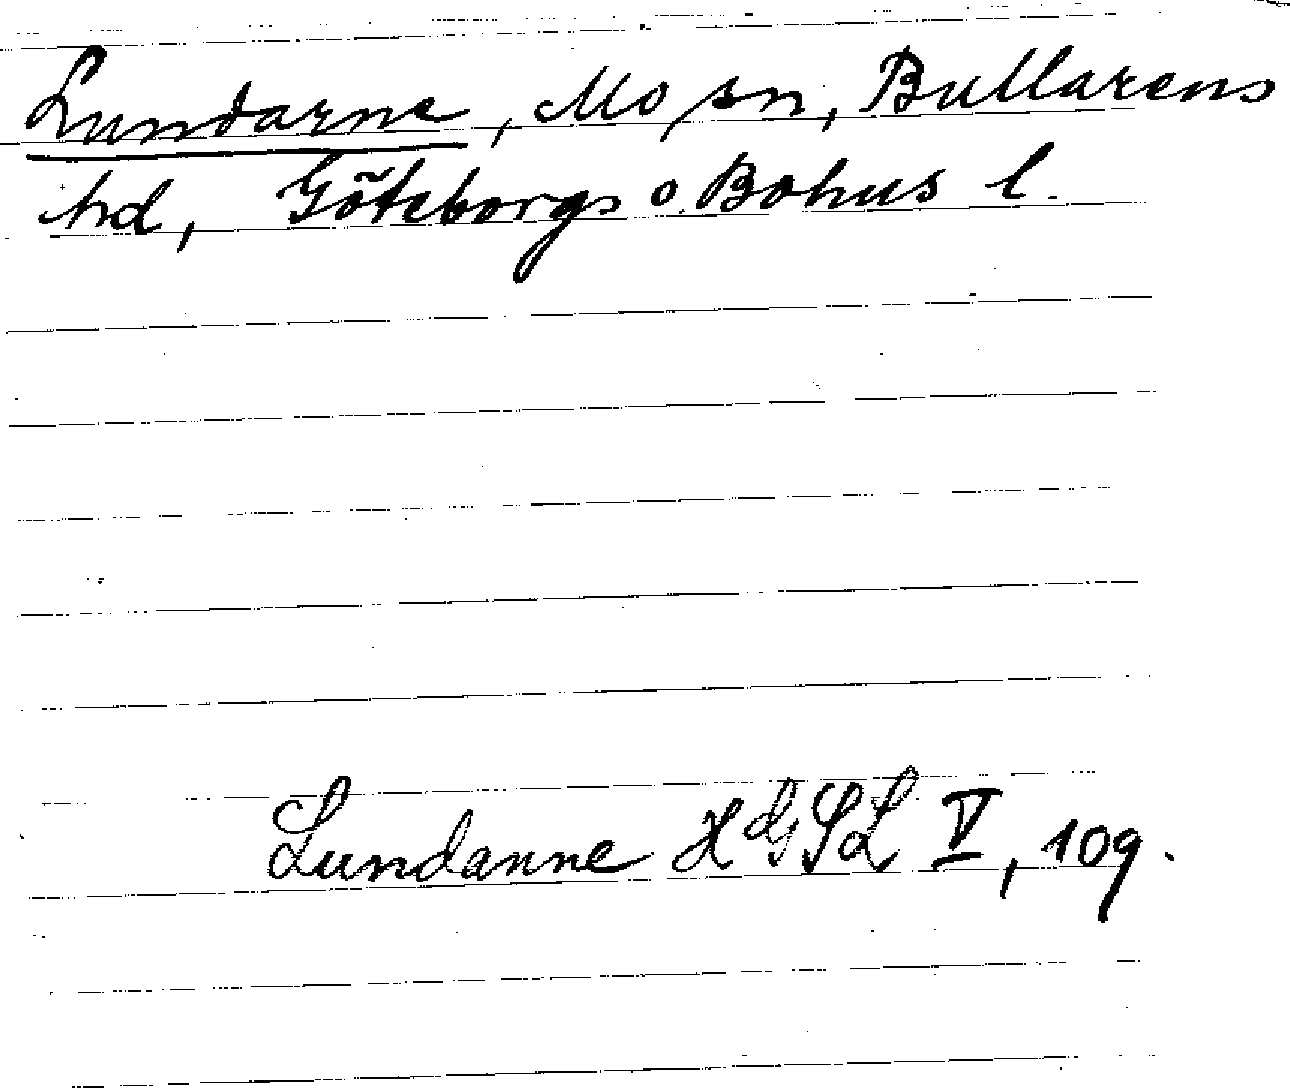 Lundarne, Mo sn, Bullarens
hd, Göteborgs o. Bohus l.
Lundanne HGSL V, 109.